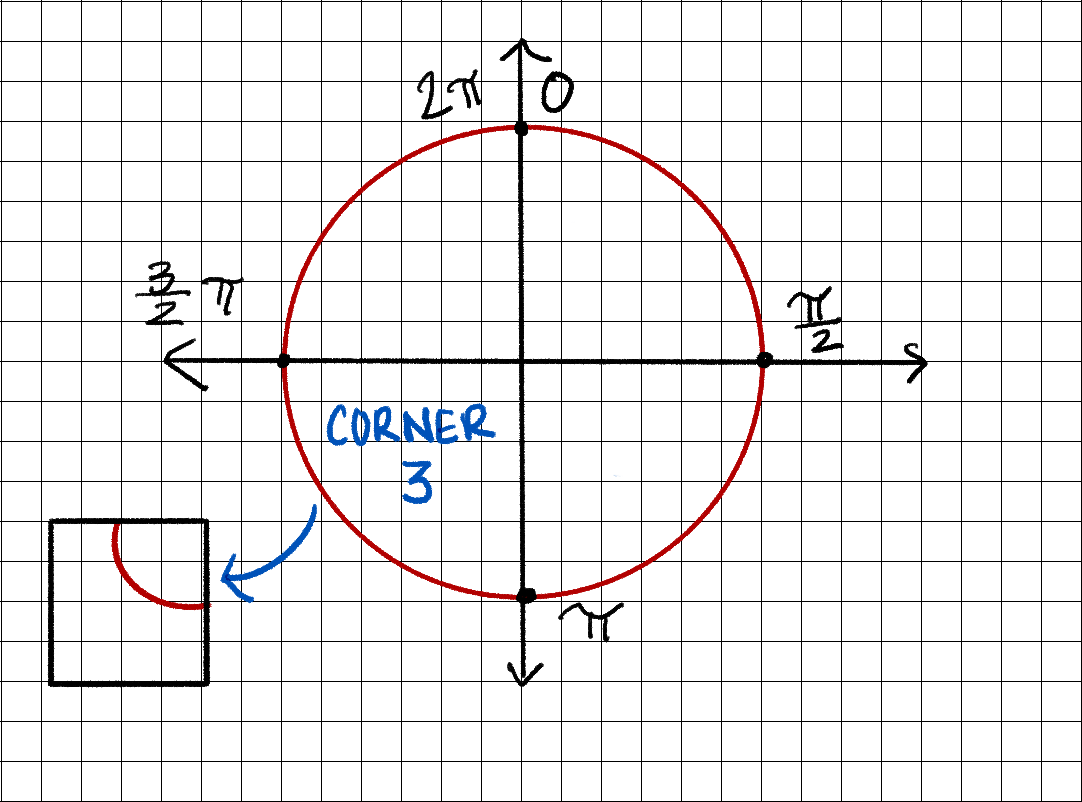 2π 0
3/2 π
π/2
CORNER
3
π